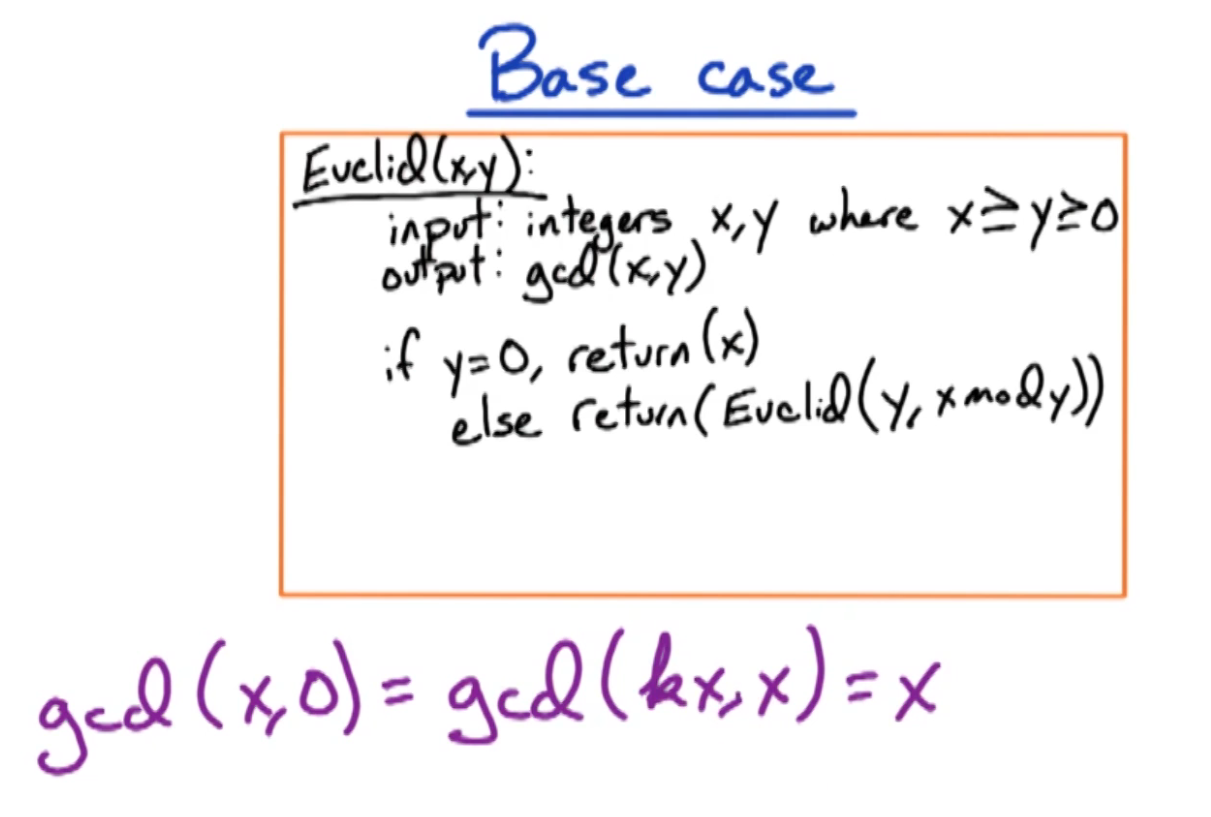 Base case
Euclid(x,y):
input: integers x,y where x≥y≥0
output: gcd(x,y)
if y=0, return(x)
else return(Euclid(y, x mod y))
gcd(x,0) = gcd(kx,x) = x